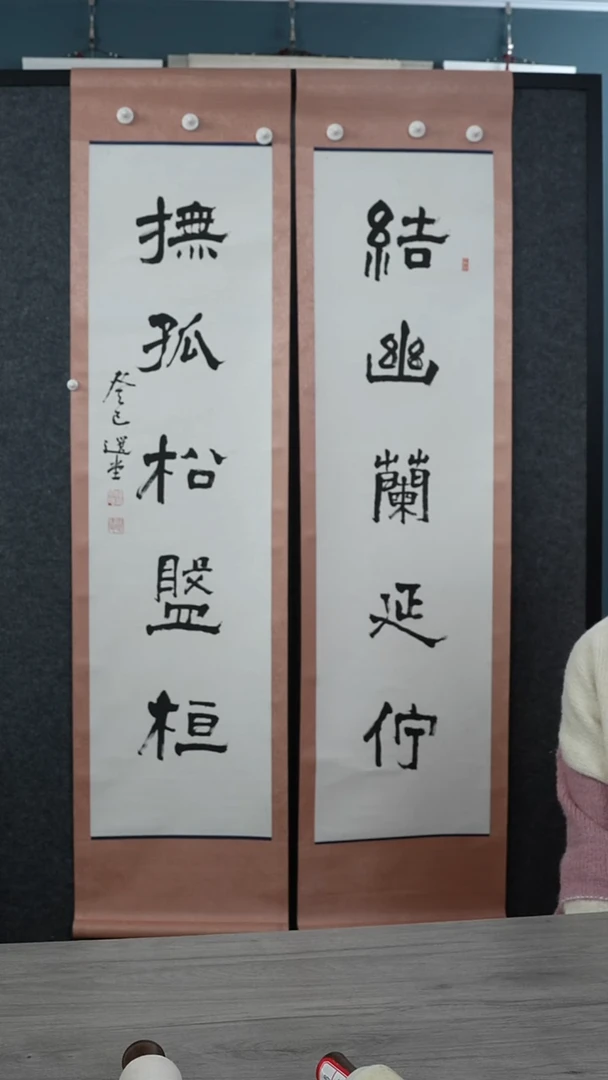 結幽蘭延佇
撫孤松盤桓
癸巳選堂